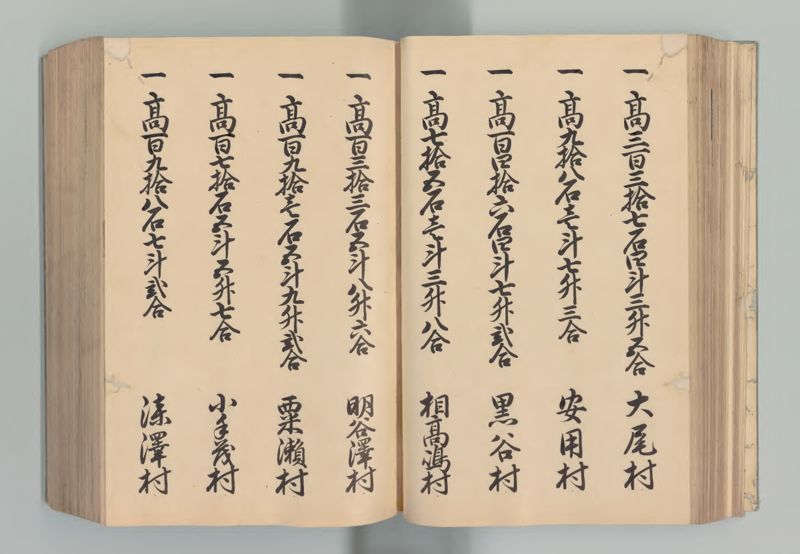 一 高三百三拾七石四斗三升五合 大尾村
一 高九拾八石壱斗七升三合 安用村
一 高百四拾六石四斗七升弐合 黒谷村
一 高七拾五石壱斗三升八合 相高嶋村
一 高百三拾三石五斗八升六合 明谷澤村
一 高百九拾壱石五斗九升弐合 粟瀬村
一 高百七拾石五斗五升七合 小手茂村
一 高百九拾八石七斗弐合 漆澤村